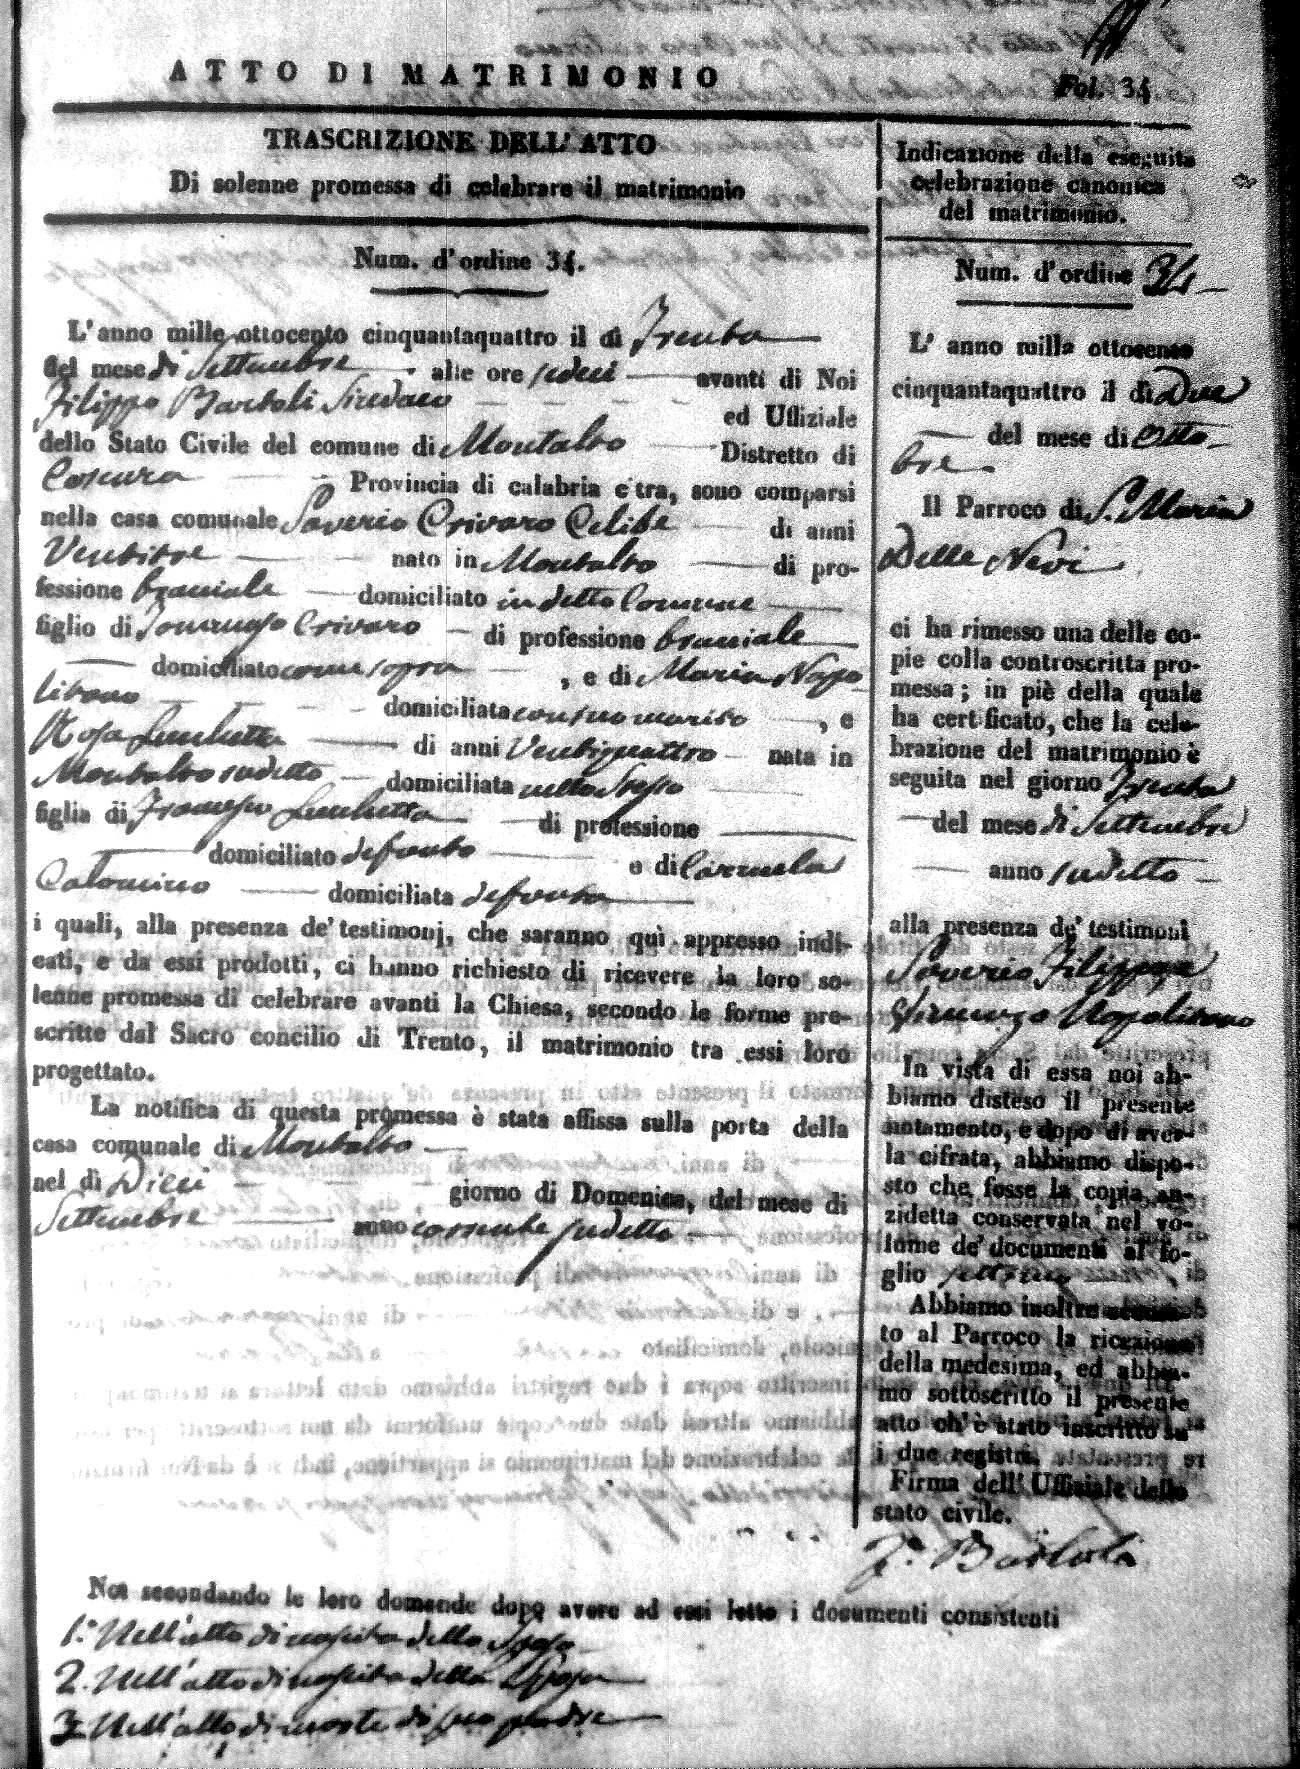 ATTO DI MATRIMONIO
Fol. 34
TRASCRIZIONE DELL' ATTO
Di solenne promessa di celebrare il matrimonio
Num. d'ordine 34.
L'anno mille ottocento cinquantaquattro il di Trenta
del mese di Settembre alle ore sedici avanti di Noi
Filippo Bartoli Sindaco ed Uffiziale
dello Stato Civile del comune di Montalto Distretto di
Cosenza Provincia di calabria citra, sono comparsi
nella casa comunale Saverio Crivaro Celibe di anni
Ventitre nato in Montalto di pro-
fessione braciale domiciliato in detto Comune
figlio di Domenico Crivaro di professione braciale
domiciliato come sopra , e di Maria Napo
litano domiciliata con suo marito , e
Rosa Lucchetta di anni Ventiquattro nata in
Montalto sudetto domiciliata nello Stesso
figlia di Francesco Lucchetta di professione
domiciliato defonto e di Carmela
Calomino domiciliata defonta
i quali, alla presenza de' testimonj, che saranno quì appresso indi-
cati, e da essi prodotti, ci hanno richiesto di ricevere la loro so-
lenne promessa di celebrare avanti la Chiesa, secondo le forme pre-
scritte dal Sacro concilio di Trento, il matrimonio tra essi loro
progettato.
La notifica di questa promessa è stata affissa sulla porta della
casa comunale di Montalto
nel dì Dieci giorno di Domenica, del mese di
Settembre anno corrente sudetto
Indicazione della eseguita
celebrazione canonica
del matrimonio.
Num. d'ordine 34
L' anno mille ottocento
cinquantaquattro il dì Due
del mese di Otto
bre
Il Parroco di S. Maria
Delle Nevi
ci ha rimesso una delle co-
pie colla controscritta pro-
messa; in piè della quale
ha certificato, che la cele-
brazione del matrimonio è
seguita nel giorno Trenta
del mese di Settembre
anno sudetto
alla presenza de' testimoni
Saverio Filippo e
Napolitano
In vista di essa noi ab-
biamo disteso il presente
notamento, e dopo di aver-
la cifrata, abbiamo dispo-
sto che fosse la copia an-
zidetta conservata nel vo-
lume de' documenti al fo-
glio
Abbiamo inoltre accusa-
to al Parroco la ricezione
della medesima, ed abbia-
mo sottoscritto il presente
atto ch' è stato inscritto su
i due registri.
Firma dell' Uffiziale dello
stato civile.
F. Bartoli
Noi secondando le loro domande dopo avere ad essi letto i documenti consistenti
1.° Nell'atto di nascita dello Sposo
2. Nell'atto di nascita della Sposa
3. Nell'atto di morte di suo padre